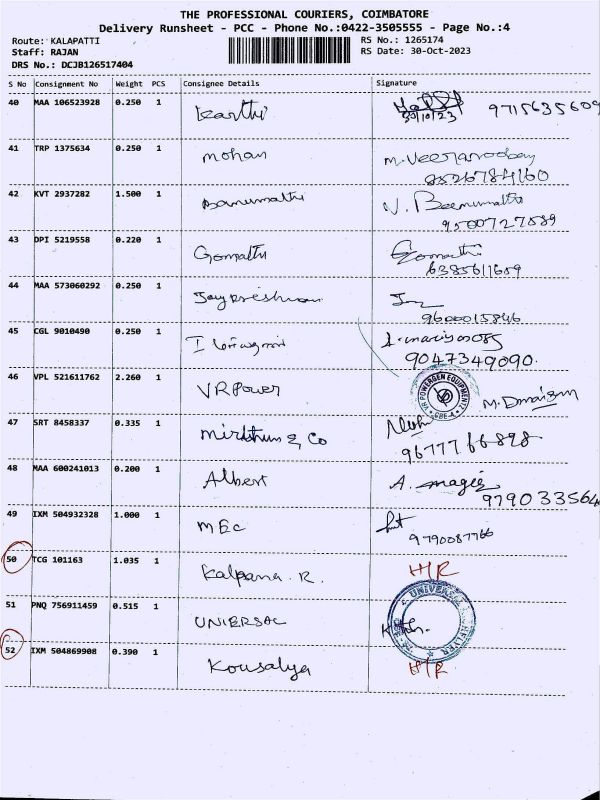 THE PROFESSIONAL COURIERS, COIMBATORE
Delivery Runsheet - PCC - Phone No.:0422-3505555 - Page No.:4
Route: KALAPATTI RS No.: 1265174
Staff: RAJAN RS Date: 30-Oct-2023
DRS No.: DCJB126517404
S No Consignment No Weight PCS Consignee Details Signature
40 MAA 106523928 0.250 1 Karthi 30/10/23 9715635609
41 TRP 1375634 0.250 1 mohan
42 KVT 2937282 1.500 1 Banumathi
9500727589
43 DPI 5219558 0.220 1 Gomathi Gomathi
6385611659
44 MAA 573060292 0.250 1
9600015846
45 CGL 9010490 0.250 1
9047349090.
46 VPL 521611762 2.260 1 VR Power VR POWERGEN EQUIPMENTZ CBE-
47 SRT 8458337 0.335 1 & Co
9677766898
48 MAA 600241013 0.200 1 Albert A.
9790335564
49 IXM 504932328 1.000 1 MEC
9790087766
50 TCG 101163 1.035 1 Kalpana. R. H/R
51 PNQ 756911459 0.515 1 UNIERSAL UNIVERSAL
52 IXM 504869908 0.390 1 Kousalya H/R